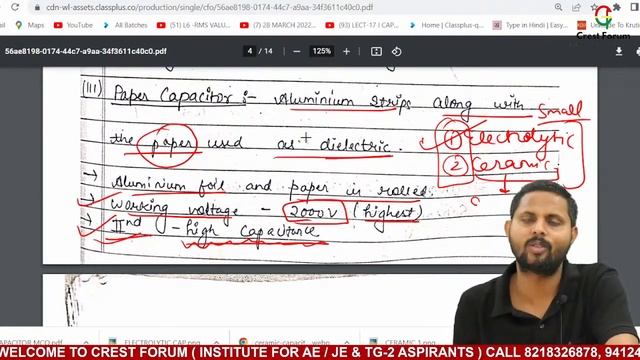 cdn-wl-assets.classplus.co/production/single/cfo/56ae8198-0174-44c7-a9aa-34f3611c40c0.pdf
Gmail
YouTube
All Batches
(51) L6 -RMS VALU...
7 (28 MARCH 2022...
(93) LECT-17 I CAP...
Courses | Classplus-q...
Type in Hindi | Easy...
Unicode To Kruti
Crest Forum
56ae8198-0174-44c7-a9aa-34f3611c40c0.pdf
4 / 14
125%
(III) Paper Capacitor :- Aluminium Strips along with small
the paper used as dielectric.
① Electrolytic
② Ceramic
→ Aluminium foil and paper is rolled.
→ Working voltage - 2000V (highest)
→ IInd - high Capacitance
APACITOR MCQ.pdf
ELECTROLYTIC CAP.png
ceramic-capacit...webp
CERAMIC 1.png
WELCOME TO CREST FORUM ( INSTITUTE FOR AE / JE & TG-2 ASPIRANTS ) CALL 8218326878, 94124